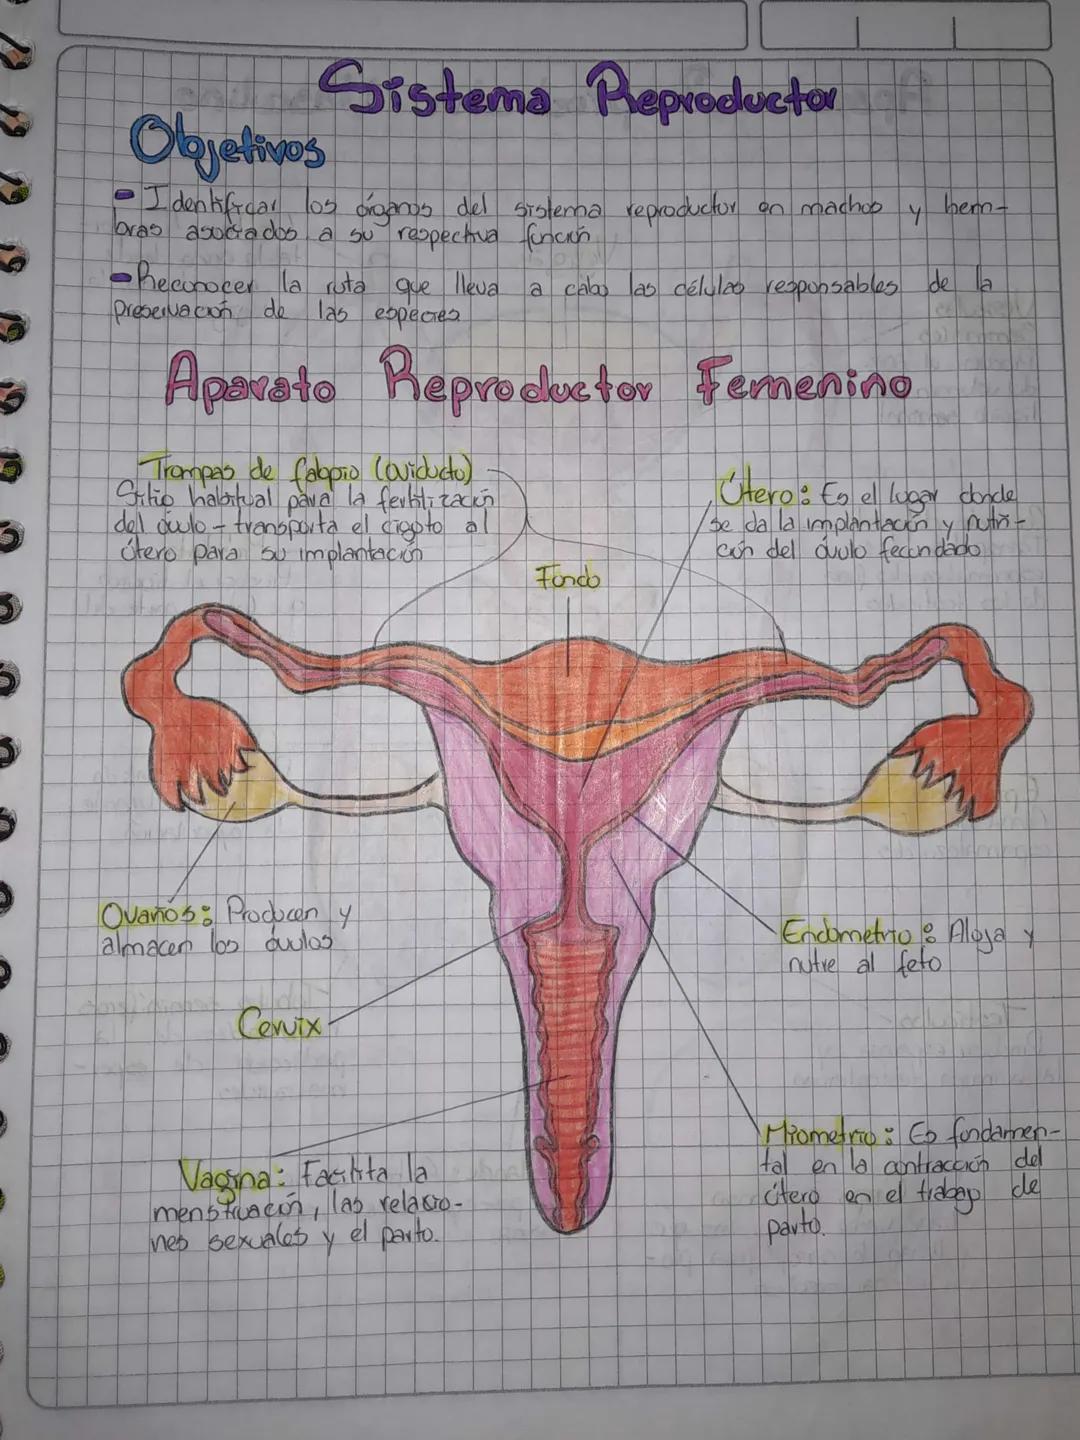 Sistema Reproductor
Objetivos
- Identificar los órganos del sistema reproductor en machos y hem-
bras asociados a su respectiva función
- Reconocer la ruta que lleva a cabo las células responsables de la
preservación de las especies
Aparato Reproductor Femenino
Trompas de falopio (oviducto)
Sitio habitual para la fertilización
del óvulo - transporta el cigoto al
útero para su implantación
Útero: Es el lugar donde
se da la implantación y nutri-
ción del óvulo fecundado
Fondo
Ovarios: Producen y
almacen los óvulos
Endometrio: Aloja y
nutre al feto
Cervix
Miometrio: Es fundamen-
tal en la contracción del
útero en el trabajo de
parto.
Vagina: Facilita la
menstruación, las relacio-
nes sexuales y el parto.